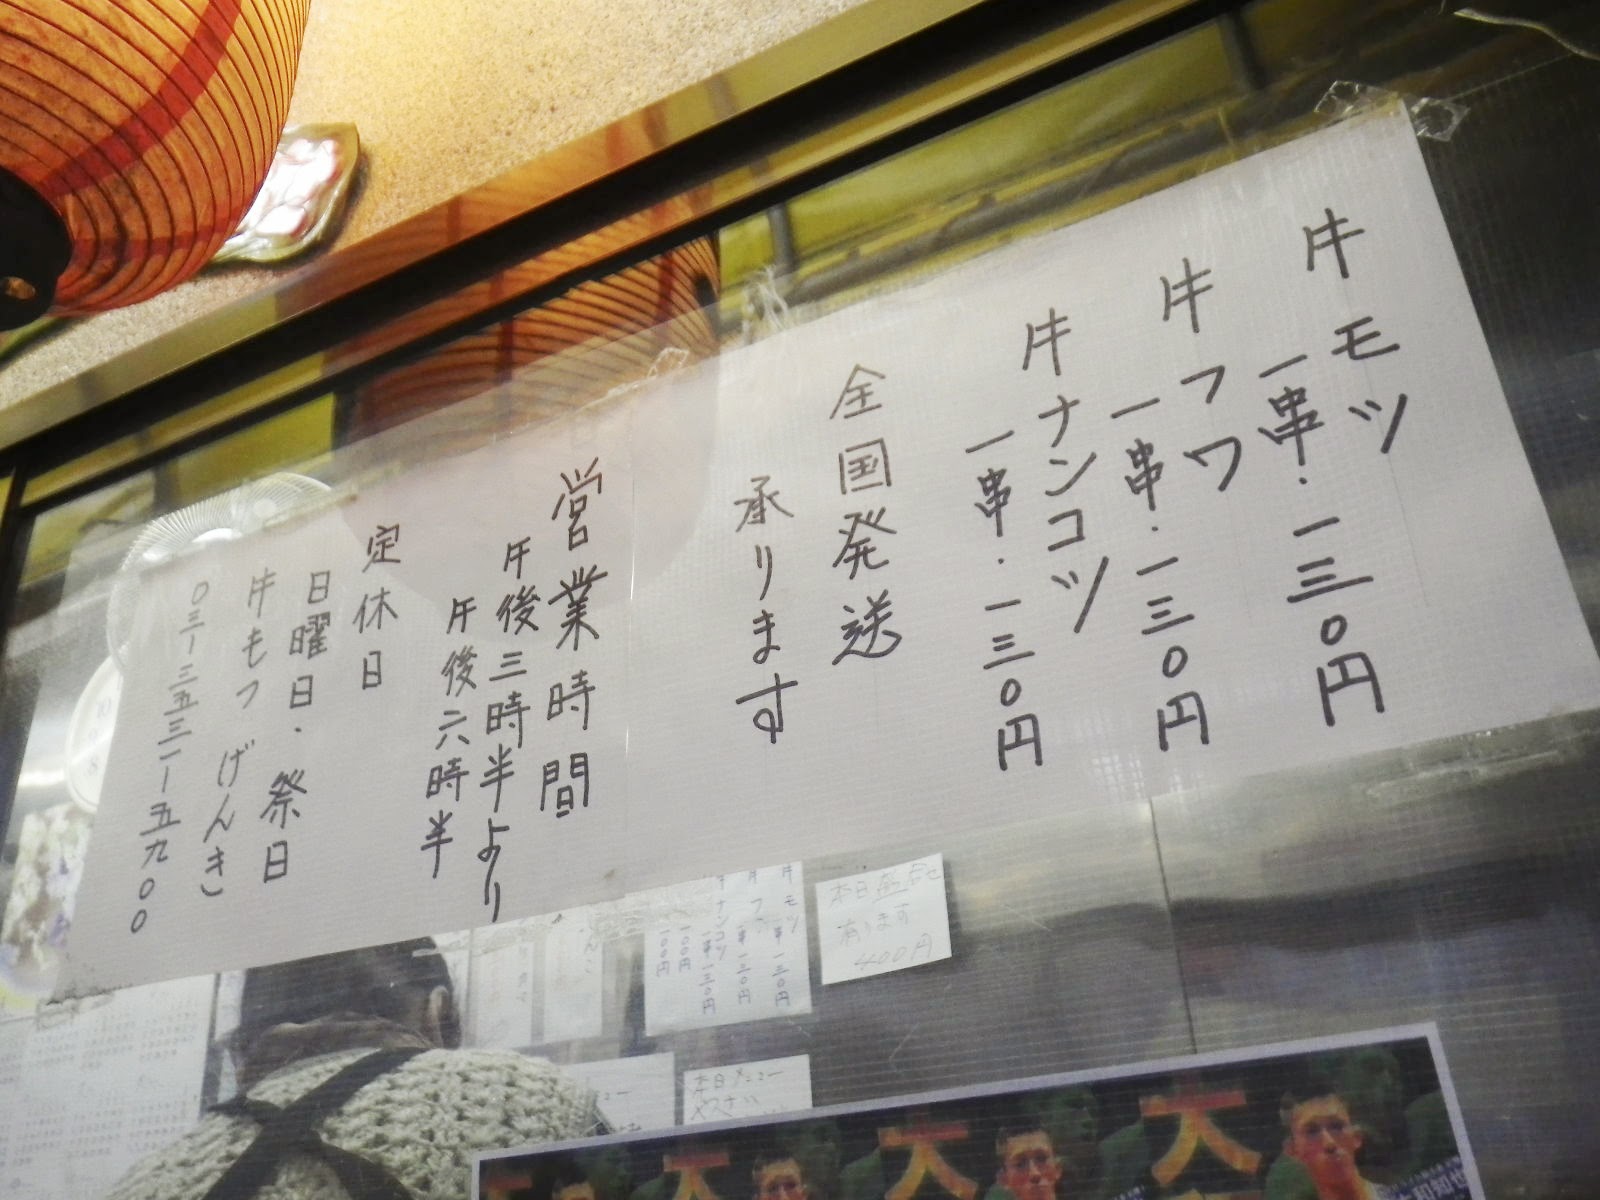 牛モツ
一串・一三〇円
牛フワ
一串・一三〇円
牛ナンコツ
一串・一三〇円
全国発送
承ります
営業時間
午後三時半より
午後六時半
定休日
日曜日・祭日
牛もつ げんき
〇三ー三五三一ー五九〇〇
牛モツ 一串 一三〇円
一串 一三〇円
牛ナンコツ
一串 一三〇円
一〇〇円
一〇〇円
本日
あります
400円
本日メニュー
大
大
大